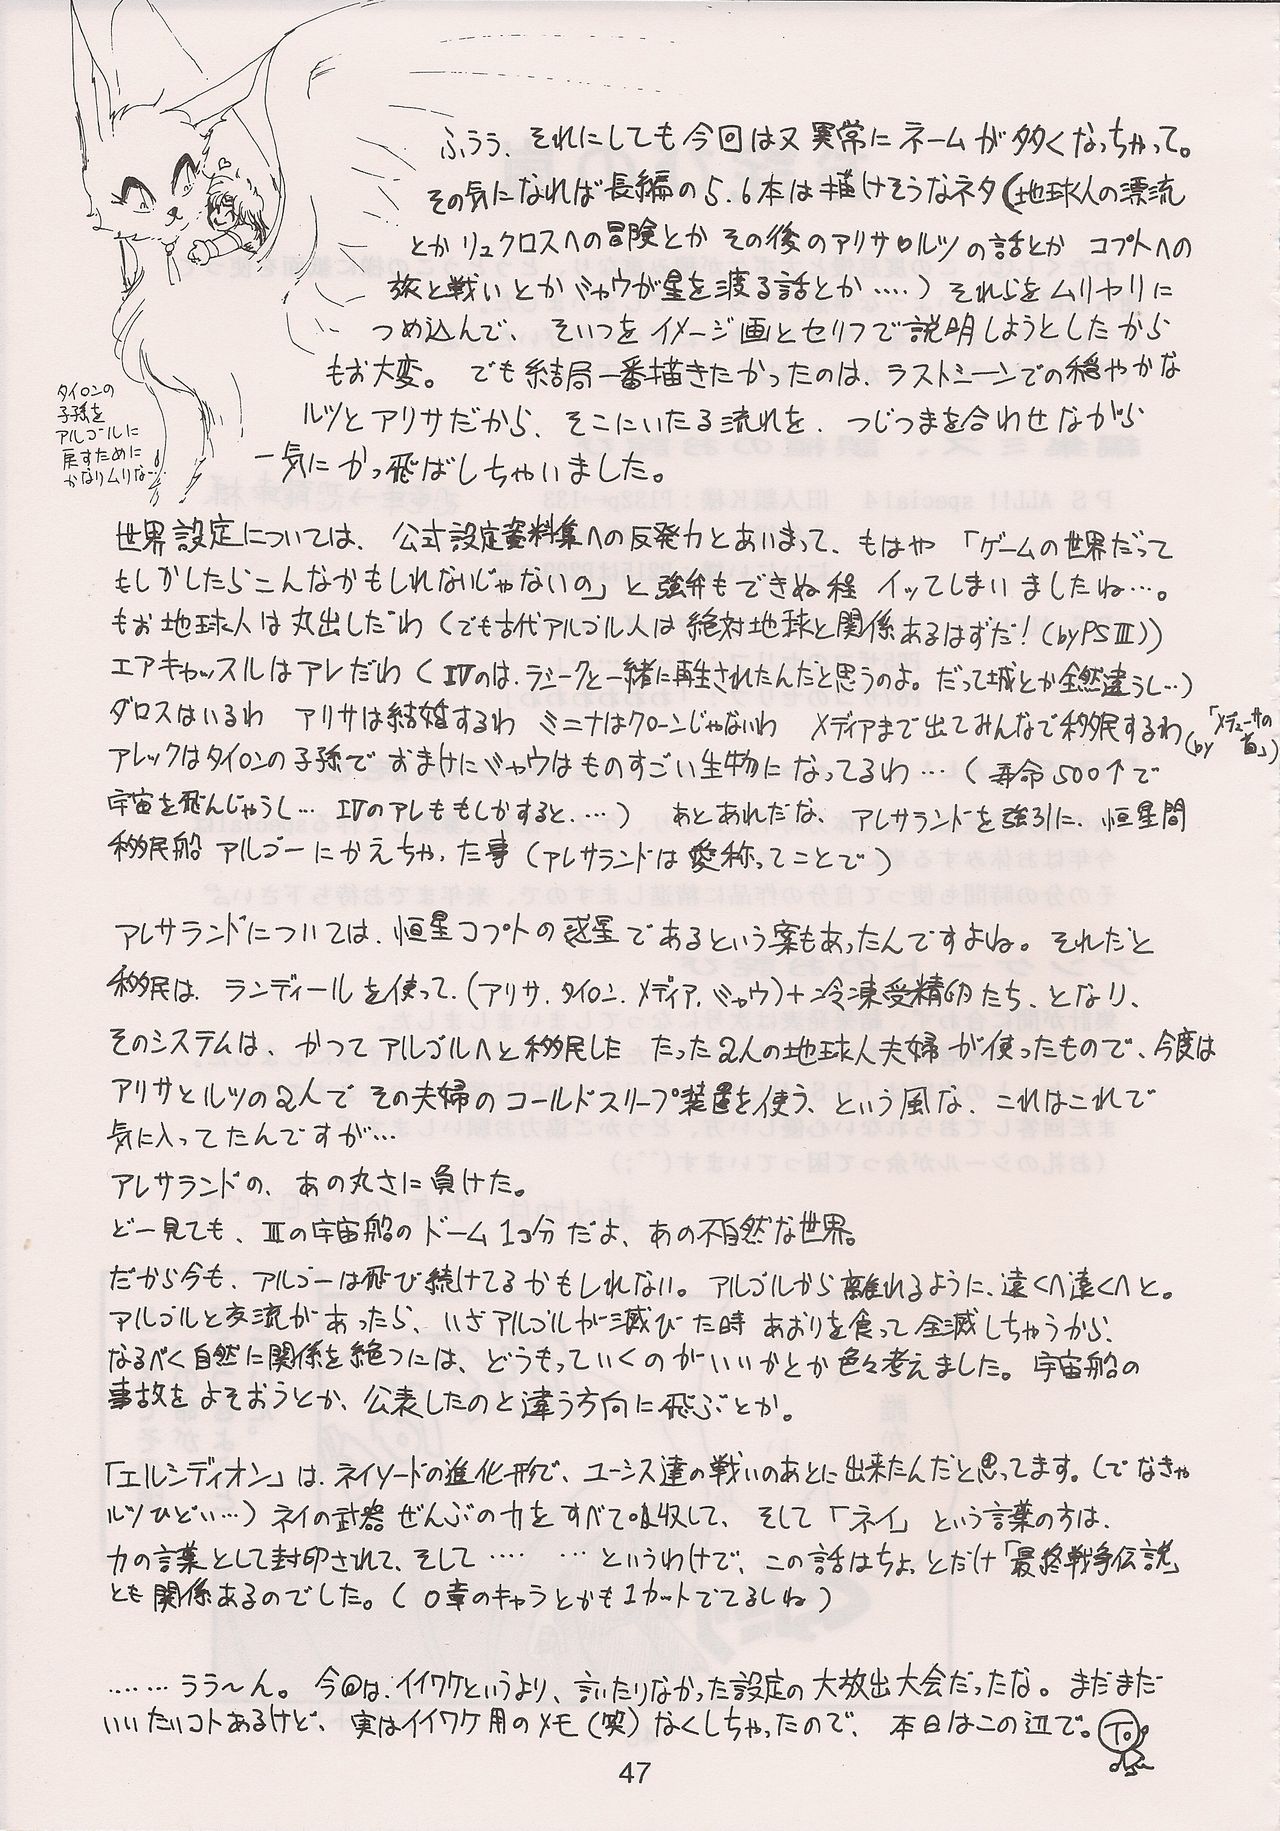 ふうぅ、それにしても今回は又異常にネームが多くなっちゃって。
その気になれば長編の5.6本は描けそうなネタ(地球人の漂流
とかリュクロスへの冒険とかその後のアリサ・ルツの話とか コプトへの
旅と戦いとかミャウが星を渡る話とか‥‥)それらをムリヤリに
つめ込んで、そいつをイメージ画とセリフで説明しようとしたから
もお大変。でも結局一番描きたかったのは、ラストシーンでの穏やかな
ルツとアリサだから、そこにいたる流れを、つじつまを合わせながら
一気にかっ飛ばしちゃいました。
タイロンの
子孫を
アルゴルに
戻すために
かなりムリな…
世界設定については、公式設定資料集への反発力とあいまって、もはや「ゲームの世界だって
もしかしたらこんなかもしれないじゃないの」と強弁もできぬ程 イッてしまいましたね…。
もお地球人は丸出しだわ(でも古代アルゴル人は絶対地球と関係あるはずだ!(byPSⅢ))
エアキャッスルはアレだわ(Ⅳのは、ラシークと一緒に再生されたんだと思うのよ。だって城とか全然違うし…)
ダロスはいるわ アリサは結婚するわ ミニナはクローンじゃないわ メディアまで出てみんなで移民するわ(by「メデューサの首」)
アレックはタイロンの子孫で おまけにミャウはものすごい生物になってるわ…(寿命500↑で
宇宙を飛んじゃうし… Ⅳのアレももしかすると、…)あとあれだな、アレサランドを強引に、恒星間
移民船 アルゴーにかえちゃった事(アレサランドは愛称ってことで)
アレサランドについては、恒星コプトの惑星であるという案もあったんですよね。それだと
移民は、ランディールを使って、(アリサ、タイロン、メディア、ミャウ)+冷凍受精卵たち、となり、
そのシステムは、かつてアルゴルへと移民した たった2人の地球人夫婦が使ったもので、今度は
アリサとルツの2人でその夫婦のコールドスリープ装置を使う、という風な、これはこれで
気に入ってたんですが…
アレサランドの、あの丸さに負けた。
どー見ても、Ⅲの宇宙船のドーム1コ分だよ、あの不自然な世界。
だから今も、アルゴーは飛び続けてるかもしれない。アルゴルから離れるように、遠くへ遠くへと。
アルゴルと交流があったら、いざアルゴルが滅びた時あおりを食って全滅しちゃうから、
なるべく自然に関係を絶つには、どうもっていくのがいいかとか色々考えました。宇宙船の
事故をよそおうとか、公表したのと違う方向に飛ぶとか。
「エルシディオン」は、ネイソードの進化形で、ユーシス達の戦いのあとに出来たんだと思ってます。(でなきゃ
ルツひどい…)ネイの武器ぜんぶの力をすべて吸収して、そして「ネイ」という言葉の方は、
力の言葉として封印されて、そして‥‥ ‥‥というわけで、この話はちょっとだけ「最終戦争伝説」
とも関係あるのでした。(0章のキャラとかも1カットででてるしね)
‥‥‥うう~ん。今回は、イイワケというより、言いたりなかった設定の大放出大会だったな。まだまだ
いいたいコトあるけど、実はイイワケ用のメモ(笑)なくしちゃったので、本日はこの辺で。To
47